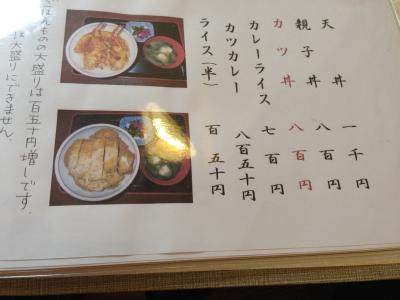 天丼 一千円
親子丼 八百円
カツ丼 八百円
カレーライス 七百円
カツカレー 八百五十円
ライス(半) 百五十円
ごはんものの大盛りは百五十円増しです。
は大盛りにできません。